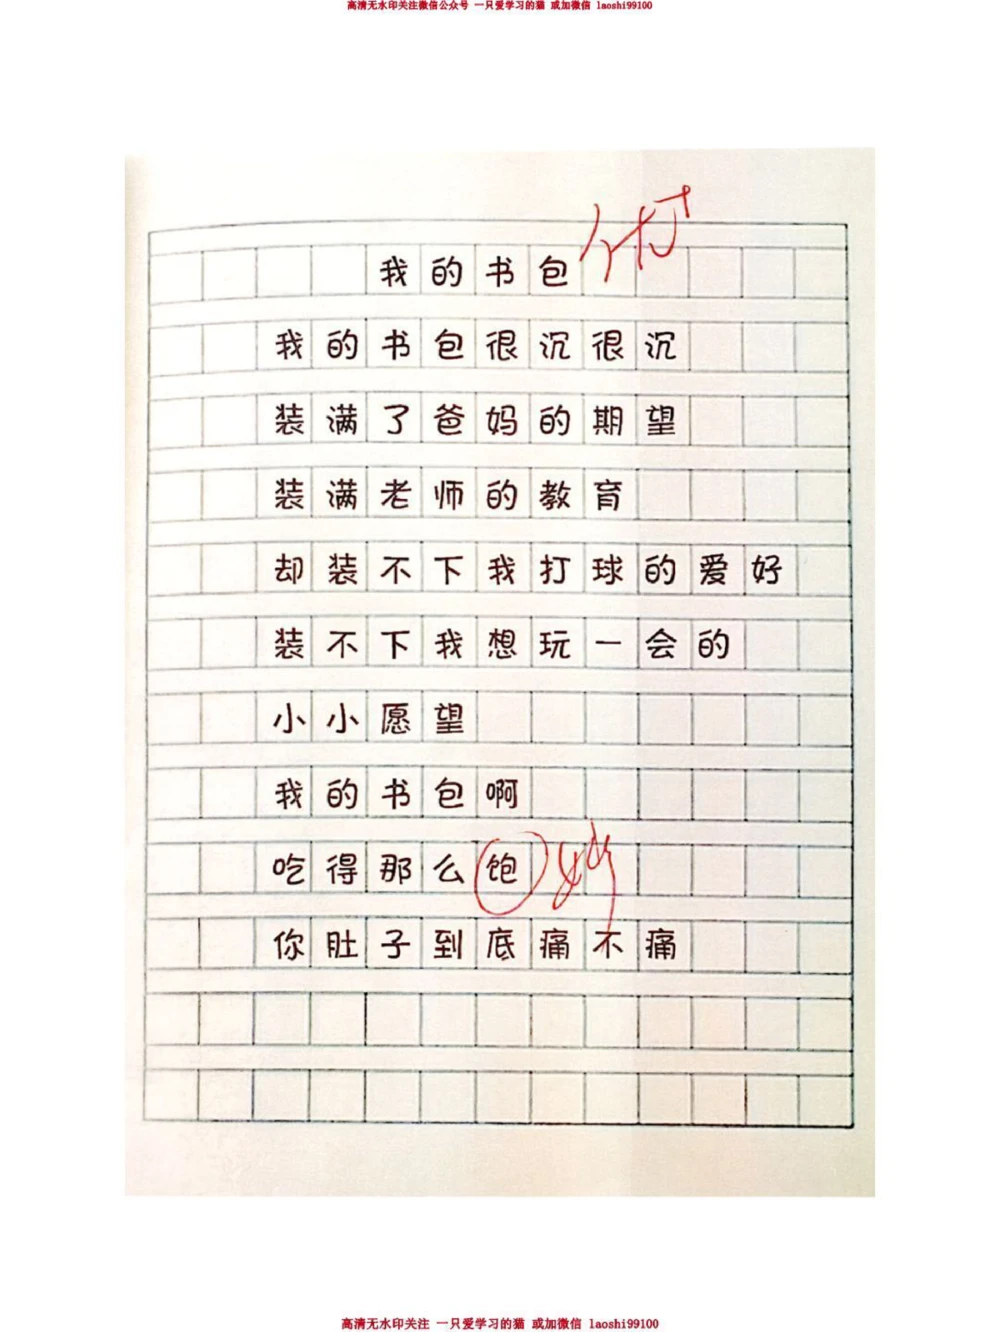 高清无水印关注微信公众号 一只爱学习的猫 或加微信 laoshi99100
优+
我的书包
我的书包很沉很沉
装满了爸妈的期望
装满老师的教育
却装不下我打球的爱好
装不下我想玩一会的
小小愿望
我的书包啊
吃得那么饱
妙
你肚子到底痛不痛
高清无水印关注 一只爱学习的猫 或加微信 laoshi99100